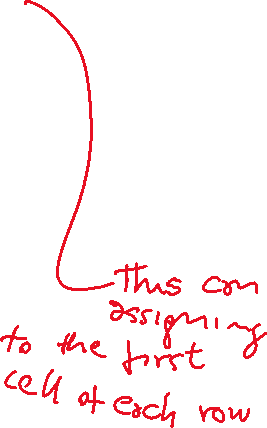 This can
assigning
to the first
cell of each row